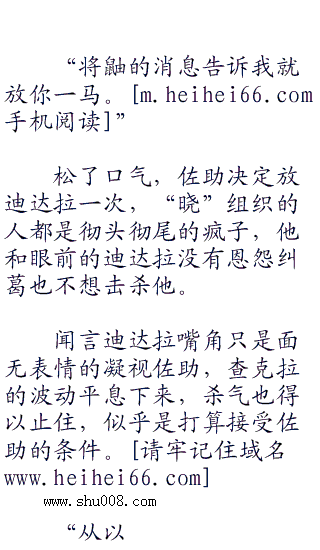 “将鼬的消息告诉我就
放你一马。[m.heihei66.com
手机阅读]”
松了口气，佐助决定放
迪达拉一次，“晓”组织的
人都是彻头彻尾的疯子，他
和眼前的迪达拉没有恩怨纠
葛也不想去杀他。
闻言迪达拉嘴角只是面
无表情的凝视佐助，查克拉
的波动平息下来，杀气也得
以止住，似乎是打算接受佐
助的条件。[请牢记住域名
www.heihei66.com]
www.shu008.com
“从以